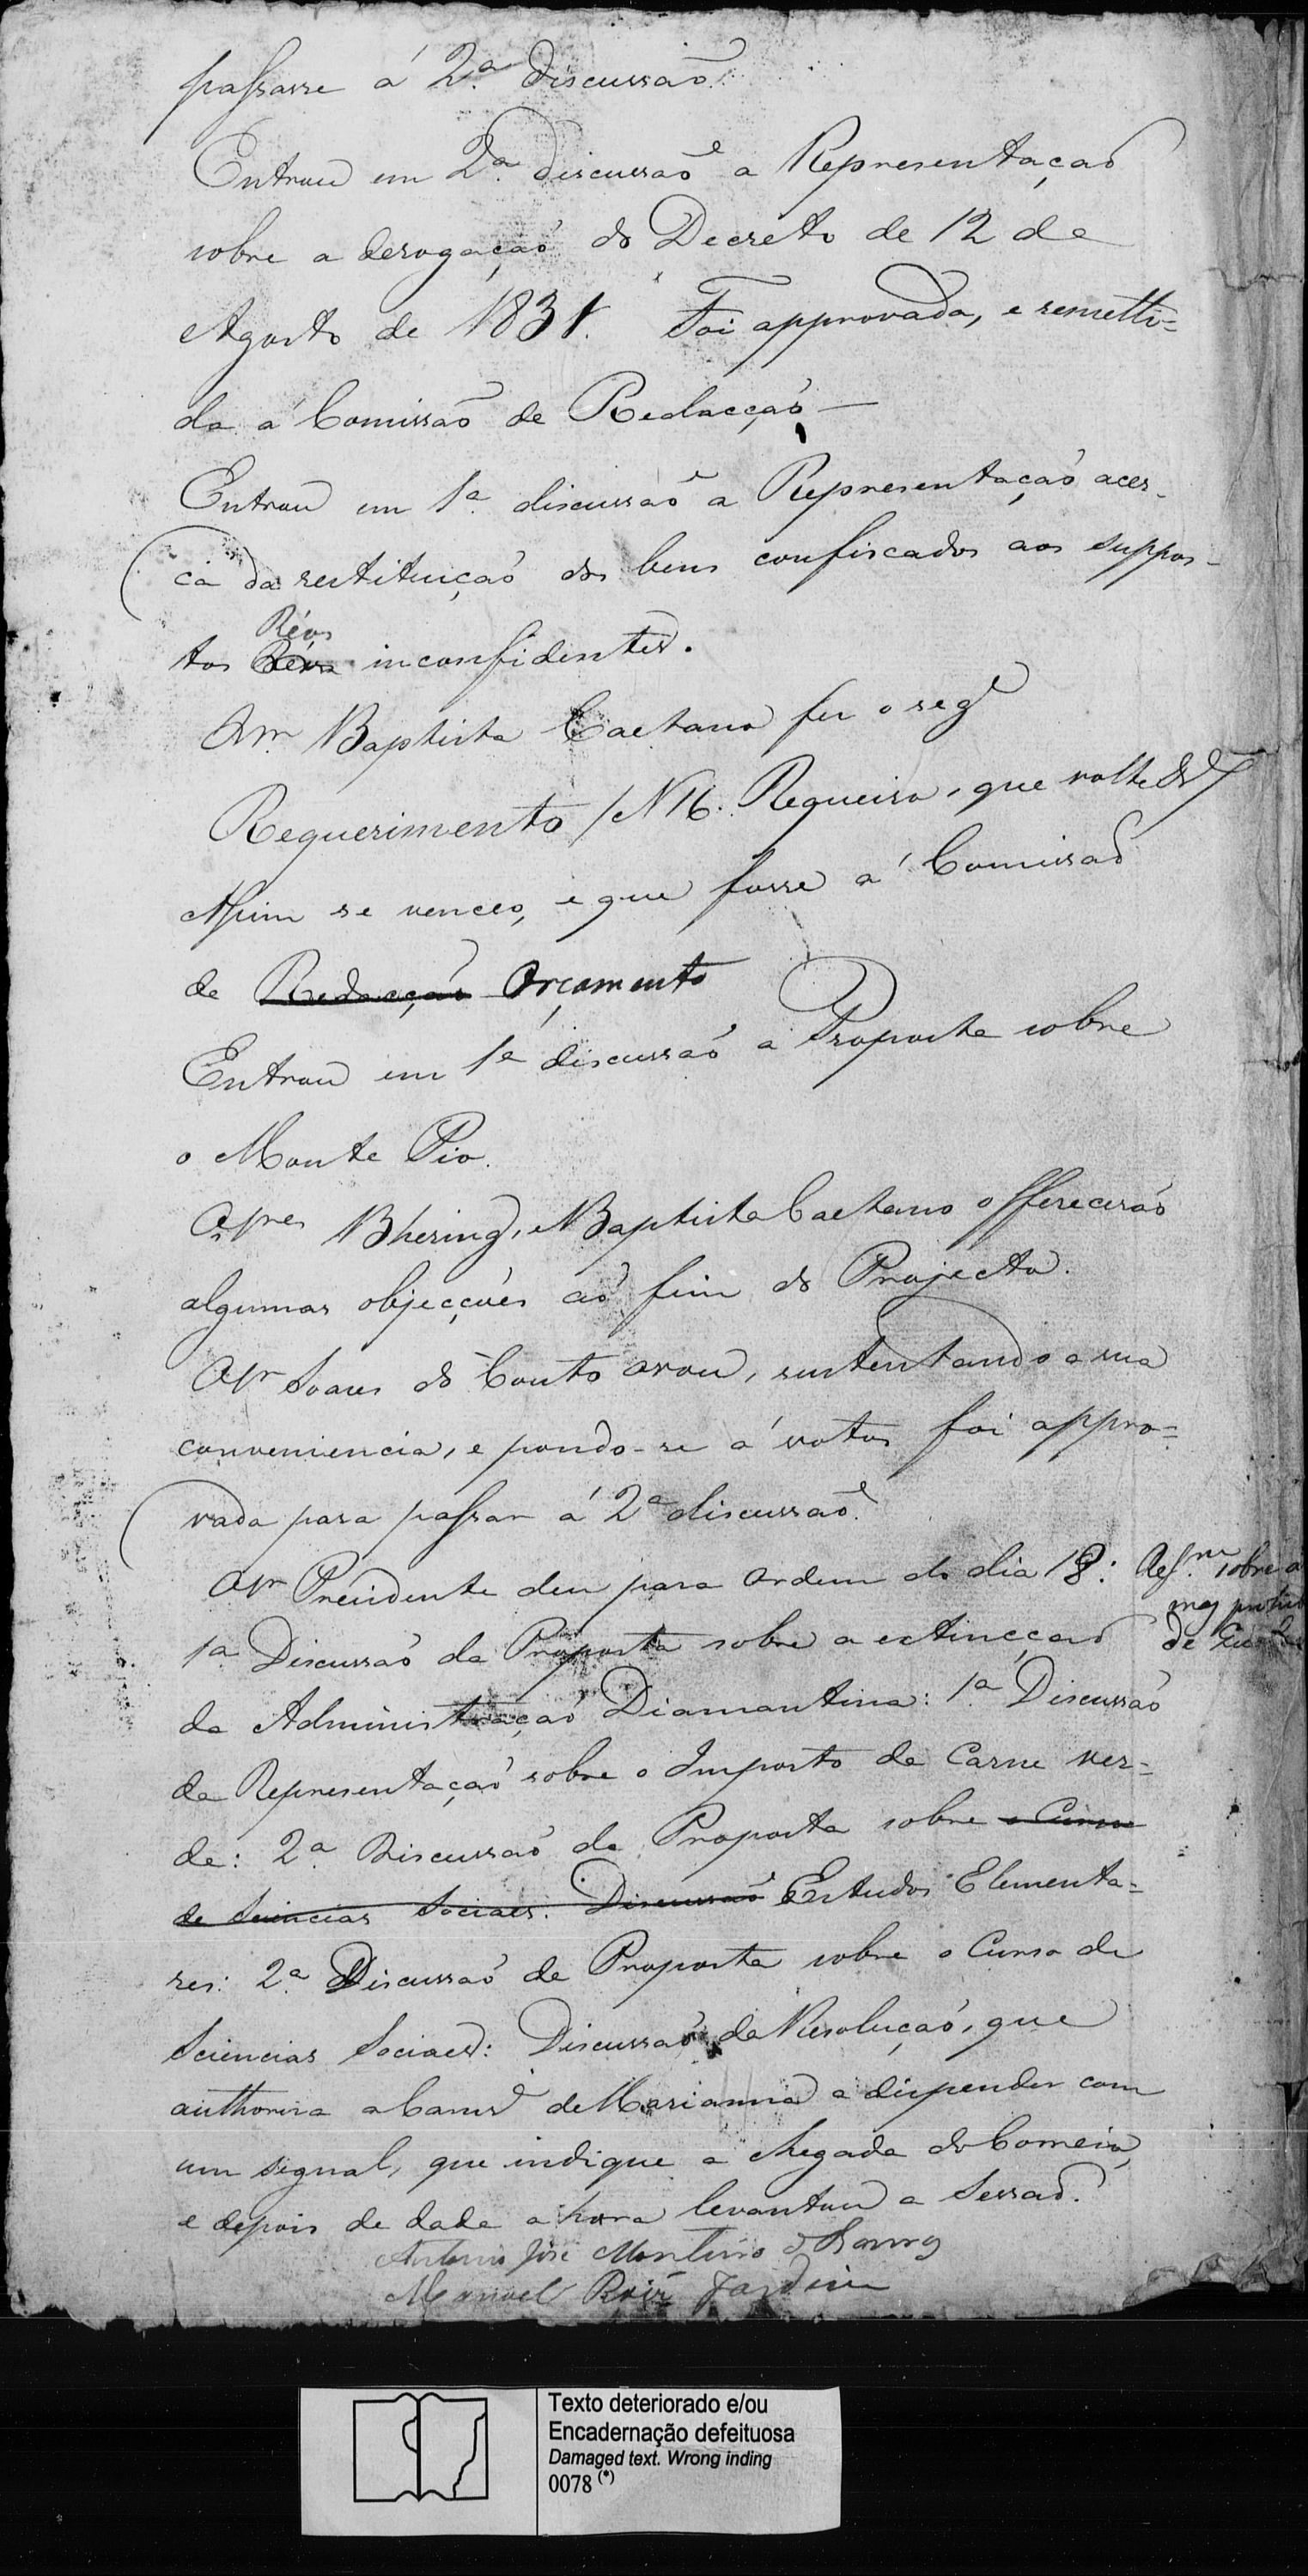 passasse á 2.ª discussaõ.
Entrou em 2.ª discussaõ a Representaçaõ
sobre a derogaçaõ do Decreto de 12 de
Agosto de 1831. Foi approvada, e remetti=
da á Comissaõ de Redacçaõ —
Entrou em 1.ª discussaõ a Representaçaõ acer-
ca da restituiçaõ dos bens confiscados aos suppos-
Réos
tos Réos inconfidentes.
O Sr. Baptista Caetano fez o seg.e
Requerimento / N 16. Requeiro, que volte &
Assim se venceo, e que fosse á Comissaõ
de Redacçaõ Orçamento
Entrou em 1.ª discussaõ a Proposta sobre
o Monte Pio.
Os Sres Bhering, e Baptista Caetano offereceraõ
algumas objecções ao fim do Projecto.
O Sr Soares do Couto orou, sustentando a sua
conveniencia, e pondo-se á votos foi appro=
vada para passar á 2.ª discussaõ.
O Sr Presidente deu para ordem do dia 18: sobre a
1.ª Discussaõ da Proposta sobre a extincçaõ de
da Administraçaõ Diamantina: 1.ª Discussaõ
da Representaçaõ sobre o Imposto da Carne ver=
de: 2.ª Discussaõ da Proposta sobre o Curso
de Sciencias Sociaes: Discussaõ Estudos Elementa=
res: 2.ª Discussaõ da Proposta sobre o Curso de
Sciencias Sociaes: Discussaõ da Resoluçaõ, que
authorisa a Camr.a de Marianna a dispender com
um signal, que indique a chegada do Correio,
e depois de dada a hora levantou a Sessaõ.
Antonio José Monteiro de Barros
Manoel Roiz Jardim
Texto deteriorado e/ou
Encadernação defeituosa
Damaged text. Wrong inding
0078 (*)